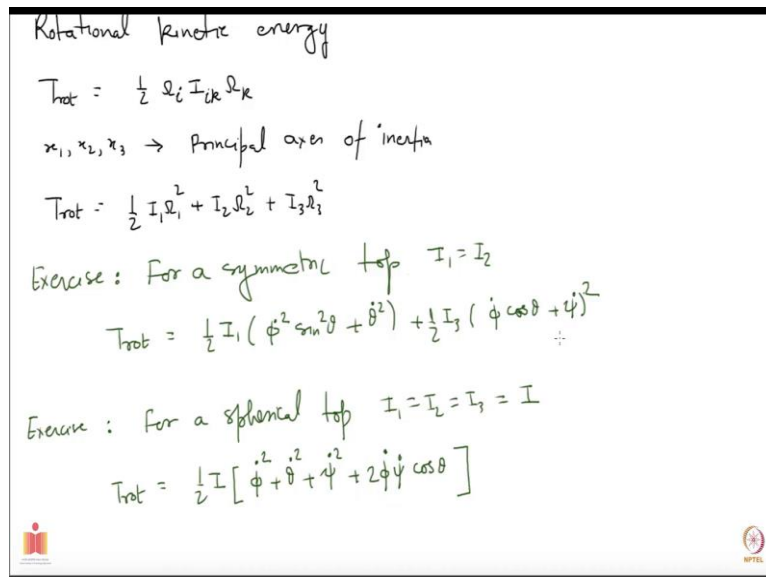 Rotational kinetic energy
Trot = 1/2 Ωi Iik Ωk
x1, x2, x3 → Principal axes of inertia
Trot = 1/2 I1Ω1² + I2Ω2² + I3Ω3²
Exercise : For a symmetric top I1 = I2
Trot = 1/2 I1 ( φ̇² sin²θ + θ̇² ) + 1/2 I3 ( φ̇ cosθ + ψ̇ )²
Exercise : For a spherical top I1 = I2 = I3 = I
Trot = 1/2 I [ φ̇² + θ̇² + ψ̇² + 2φ̇ψ̇ cosθ ]
NPTEL